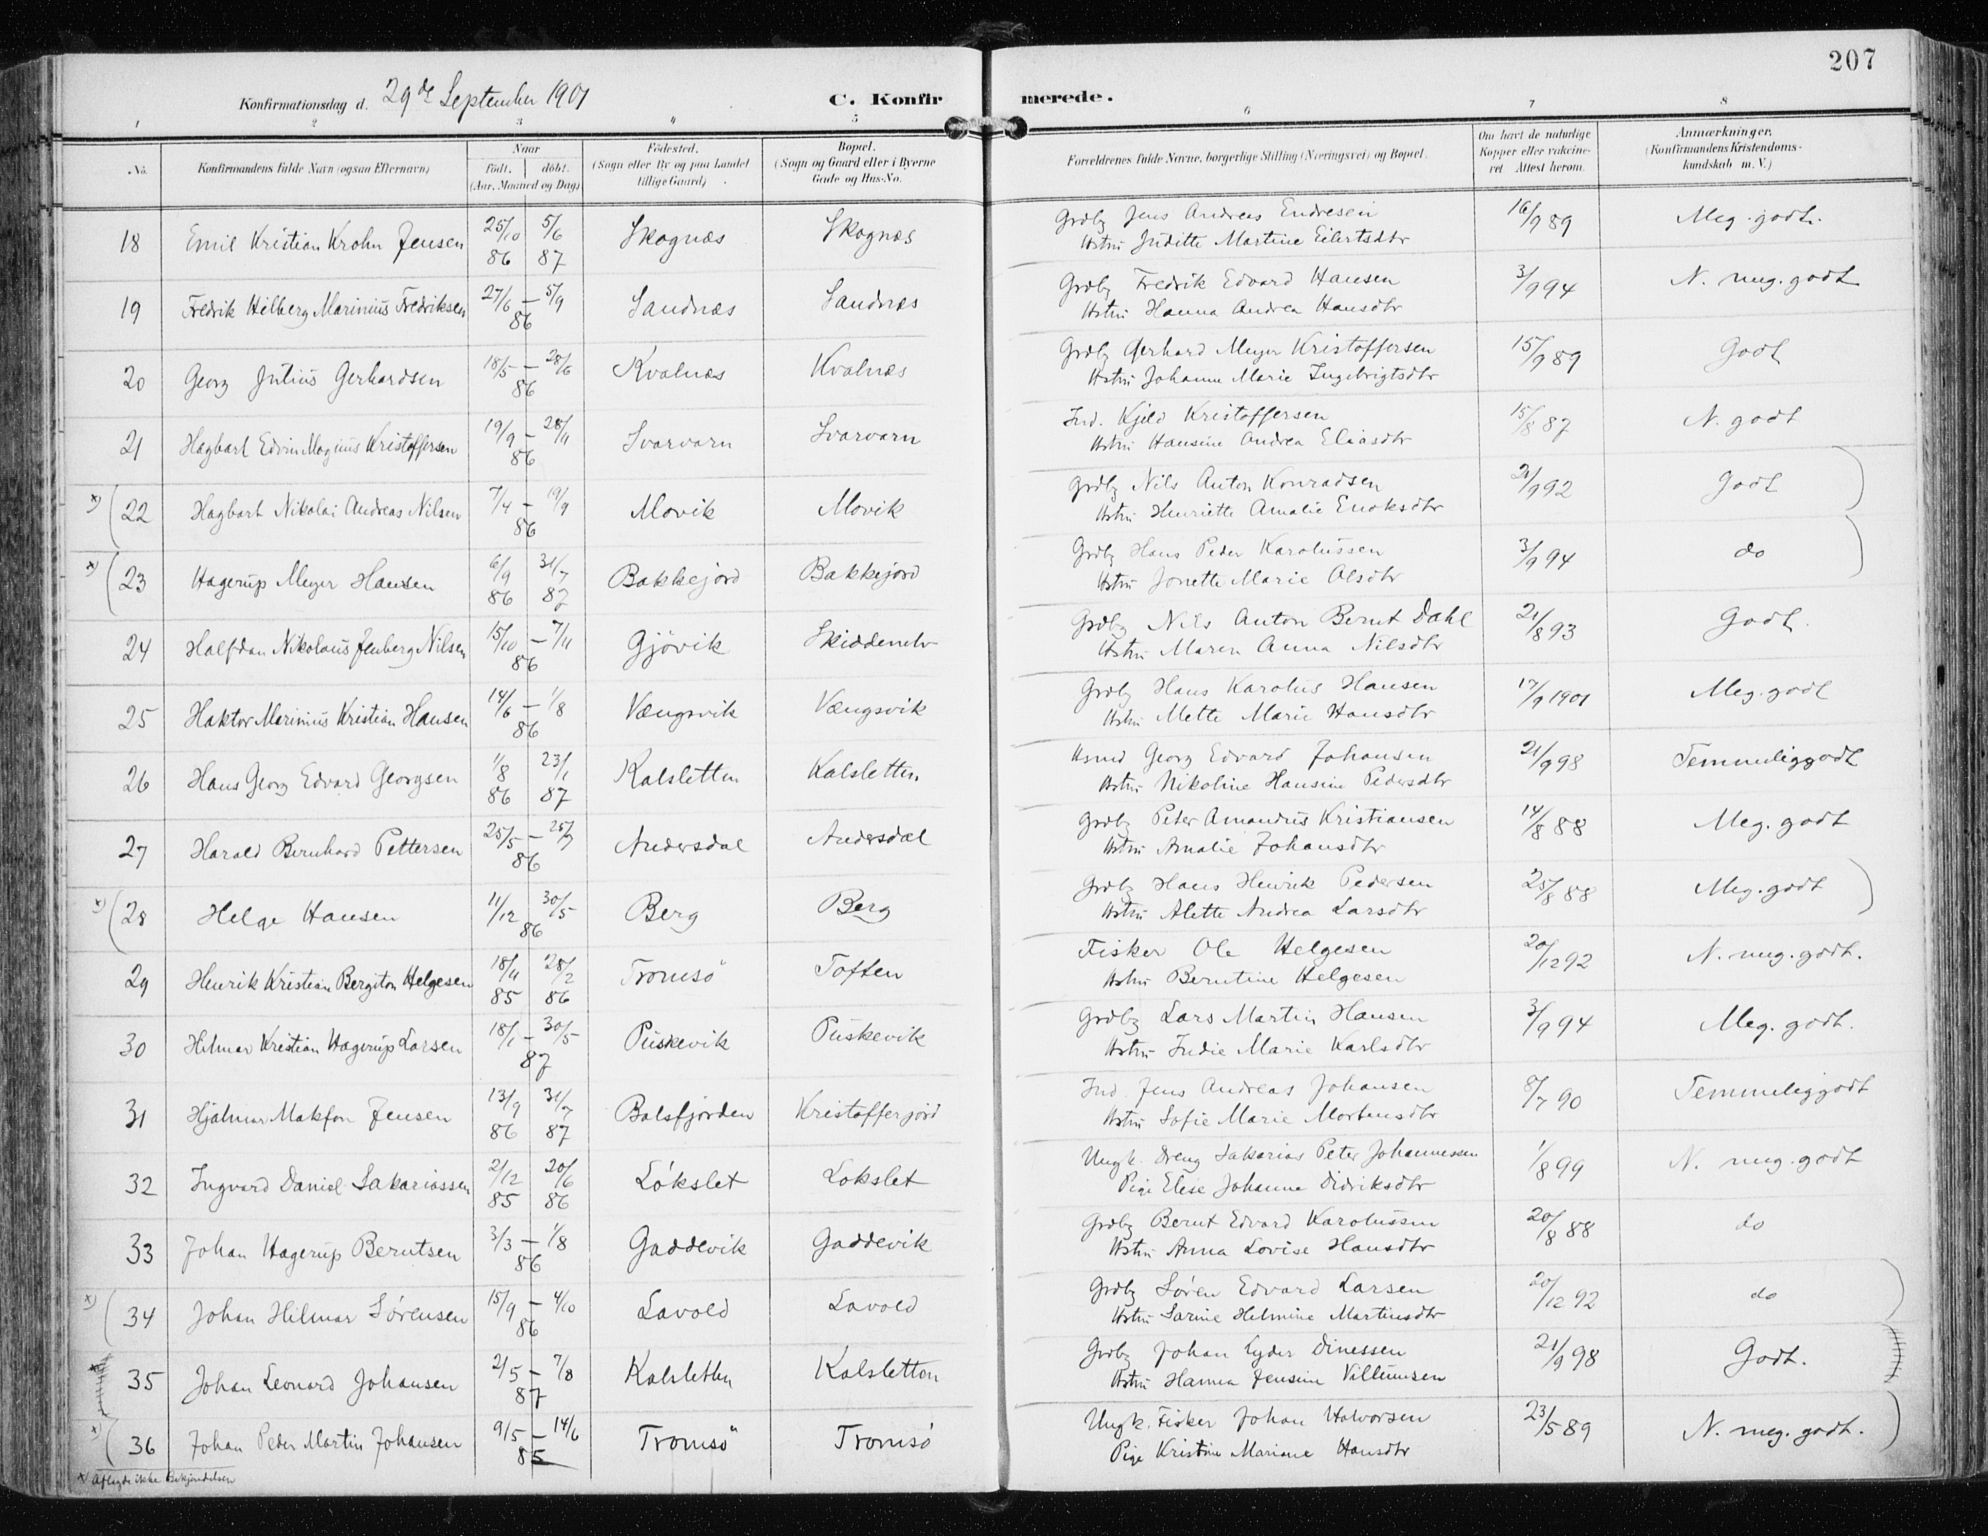 207
Konfirmationsdag d. 29de September 1901 C. Konfir merede.
1 2 3 4 5 6 7 8
No. Konfirmandens fulde Navn (ogsaa Efternavn) Naar født. døbt. (Aar, Maaned og Dag) Födested. (Sogn eller By og paa Landet tillige Gaard) Bopæl. (Sogn og Gaard eller i Byerne Gade og Hus-No. Forældrenes fulde Navne, borgerlige Stilling (Næringsvei) og Bopæl. Om havt de naturlige Kopper eller vakcineret Attest herom. Anmærkninger. (Konfirmandens Kristendomskundskab m. V.)
18 Emil Kristian Krohn Jensen 25/10 86 5/6 87 Skognæs Skognæs Grdbz Jens Andreas Endresen 16/9 89 Meg. godt.
Hstru Juditte Martine Eilertsdtr
19 Fredrik Hilberg Marinius Fredriksen 27/6 – 5/9 86 Sandnæs Sandnæs Grdbz Fredrik Edvard Hansen 3/9 94 N. meg. godt
Hstru Hanna Andrea Hansdtr
20 Georg Julius Gerhardsen 18/5 – 28/6 86 Kvalnæs Kvalnæs Grdbz Gerhard Meyer Kristoffersen 15/9 89 Godt
Hstru Johanne Marie Ingebrigtsdtr
21 Hagbart Edvin Magnus Kristoffersen 19/9 – 28/11 86 Svarvarn Svarvarn Ind. Kjeld Kristoffersen 15/8 87 N. godt
Hstru Hansine Andrea Eliasdtr
x) 22 Hagbart Nikolai Andreas Nilsen 7/4 – 19/9 86 Movik Movik Grdbz Nils Anton Konradsen 21/9 92 Godt
Hstru Henriette Amalie Enoksdtr
x) 23 Hagerup Meyer Hansen 6/9 86 31/7 87 Bakkejord Bakkejord Grdbz Hans Peder Karolussen 3/9 94 do
Hstru Jonette Marie Olsdtr
24 Halfdan Nikolaus Jenberg Nilsen 15/10 – 7/11 86 Gjövik Skiddenelv Grdbz Nils Anton Bernt Dahl 21/8 93 Godt.
Hstru Maren Anna Nilsdtr
25 Haktor Marinius Kristian Hansen 14/6 – 1/8 86 Vængsvik Vængsvik Grdbz Hans Karolus Hansen 17/9 1901 Meg. godt
Hstru Mette Marie Hansdtr
26 Hans Georg Edvard Georgsen 1/8 86 23/1 87 Kalsletten Kalsletten Hsmd Georg Edvard Johansen 21/9 98 Temmelig godt
Hstru Nikoline Hansine Pedersdtr
27 Harald Bernhard Pettersen 25/5 – 25/7 86 Andersdal Andersdal Grdbz Peter Amandus Kristiansen 14/8 88 Meg. godt
Hstru Amalie Johansdtr
x) 28 Helge Hansen 11/12 30/5 86 Berg Berg Grdbz Hans Henrik Pedersen 25/8 88 Meg. godt
Hstru Alette Andrea Larsdtr
29 Henrik Kristian Bergiton Helgesen 18/11 85 28/2 86 Tromsö Toften Fisker Ole Helgesen 20/12 92 N. meg. godt.
Hstru Berntine Helgesen
30 Hilmar Kristian Hagerup Larsen 18/1 – 30/5 87 Puskevik Puskevik Grdbz Lars Martin Hansen 3/9 94 Meg. godt.
Hstru Indie Marie Karlsdtr
31 Hjalmar Makfon Jensen 13/9 86 31/7 87 Balsfjorden Kristofferjord Ind. Jens Andreas Johansen 8/7 90 Temmelig godt
Hstru Sofie Marie Mortensdtr
32 Ingvard Daniel Sakariassen 2/12 85 20/6 86 Lökslet Lokslet Ungk. Dreng Sakarias Peter Johannessen 1/8 99 N. meg. godt
Pige Elise Johanna Didriksdtr
33 Johan Hagerup Berntsen 3/3 – 1/8 86 Gaddevik Gaddevik Grdbz Bernt Edvard Karolussen 20/8 88 do
Hstru Anna Lovise Hansdtr
x) 34 Johan Hilmar Sörensen 15/9 – 4/10 86 Lavold Lavold Grdbz Søren Edvard Larsen 20/12 92 do
Hstru Sarine Helmine Martinsdtr
35 Johan Leonard Johansen 2/5 – 7/8 87 Kalsletten Kalsletten Grdbz Johan Lyder Dinessen 21/9 98 Godt.
Hstru Hanna Jensine Villumsen
x) 36 Johan Peder Martin Johansen 9/5 – 14/6 85 Tromsö Tromsö Ungk. Fisker Johan Halvorsen 23/5 89 N. meg. godt.
Pige Kristine Mariane Hansdtr
x) Aflagde ikke Bekjendelsen